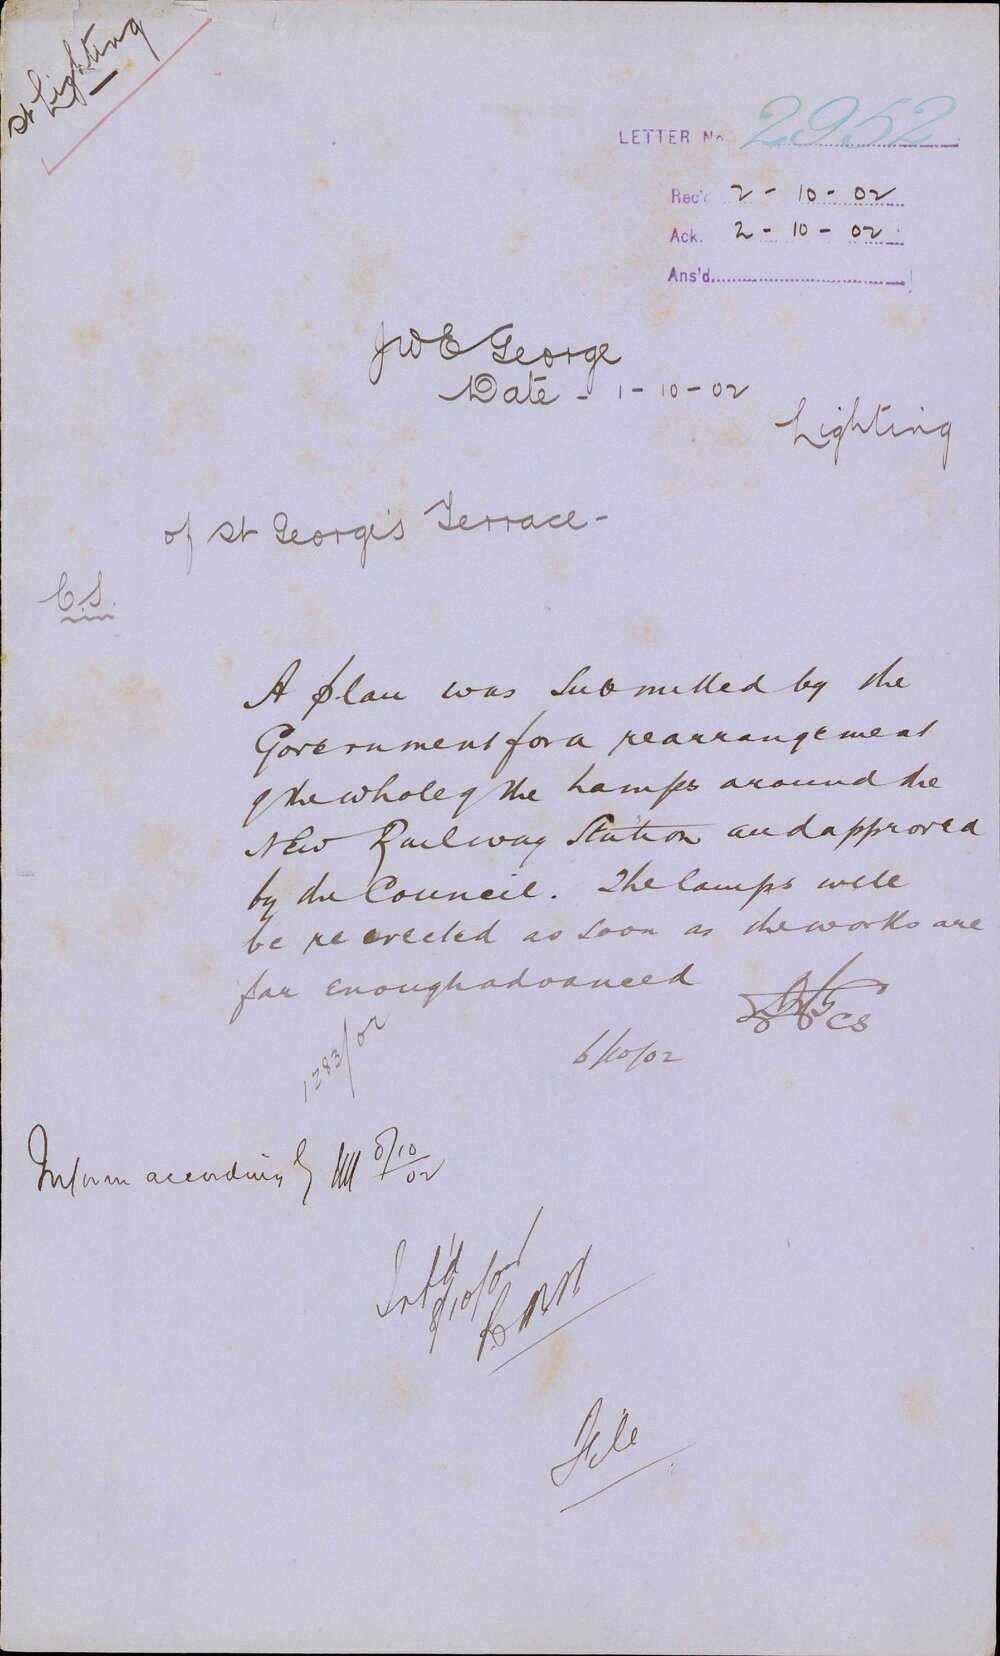 St Lighting
LETTER No 2952
Rec'd 2-10-02
Ack. 2-10-02
Ans'd
JWE George
Date - 1-10-02
Lighting
of St George's Terrace -
CS.
A plan was submitted by the
Government for a rearrangement
of the whole of the Lamps around the
New Railway Station and approved
by the Council. The lamps will
be re erected as soon as the works are
far enough advanced
CS
6/10/02
1283/02
Inform accordingly 8/10/02
Inf'd
8/10/02
File